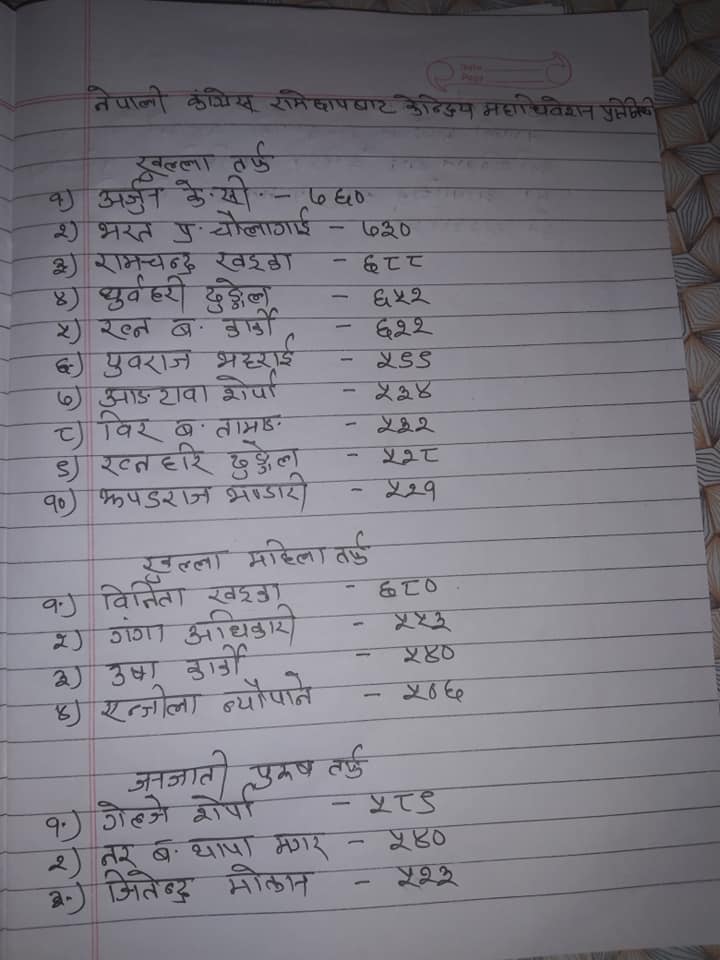 नेपाली कांग्रेस रामेछापबाट केन्द्रिय महाधिवेशन प्रतिनिधी
खुल्ला तर्फ
१) अर्जुन के.सी. - ७६०
२) भरत प्र. चौलागाई - ७३०
३) रामचन्द्र खड्का - ६८८
४) ध्रुर्वहरी ढुङ्गेल - ६५२
५) रत्न ब. कार्की - ६२२
६) युवराज भट्टराई - ५९९
७) आङटावा शेर्पा - ५३४
८) विर ब. तामाङ - ५३२
९) रत्नहरि ढुङ्गेल - ५२८
१०) झपडराज भण्डारी - ५२१
खुल्ला महिला तर्फ
१.) विनिता खड्का - ६८०
२) गंगा अधिकारी - ५५३
३) उषा कार्की - ५४०
४) रन्जीला न्यौपाने - ५०६
जनजाती पुरुष तर्फ
१.) गेल्जे शेर्पा - ५८९
२) नर ब. थापा मगर - ५४०
३.) जितेन्द्र मोक्तान - ५२३